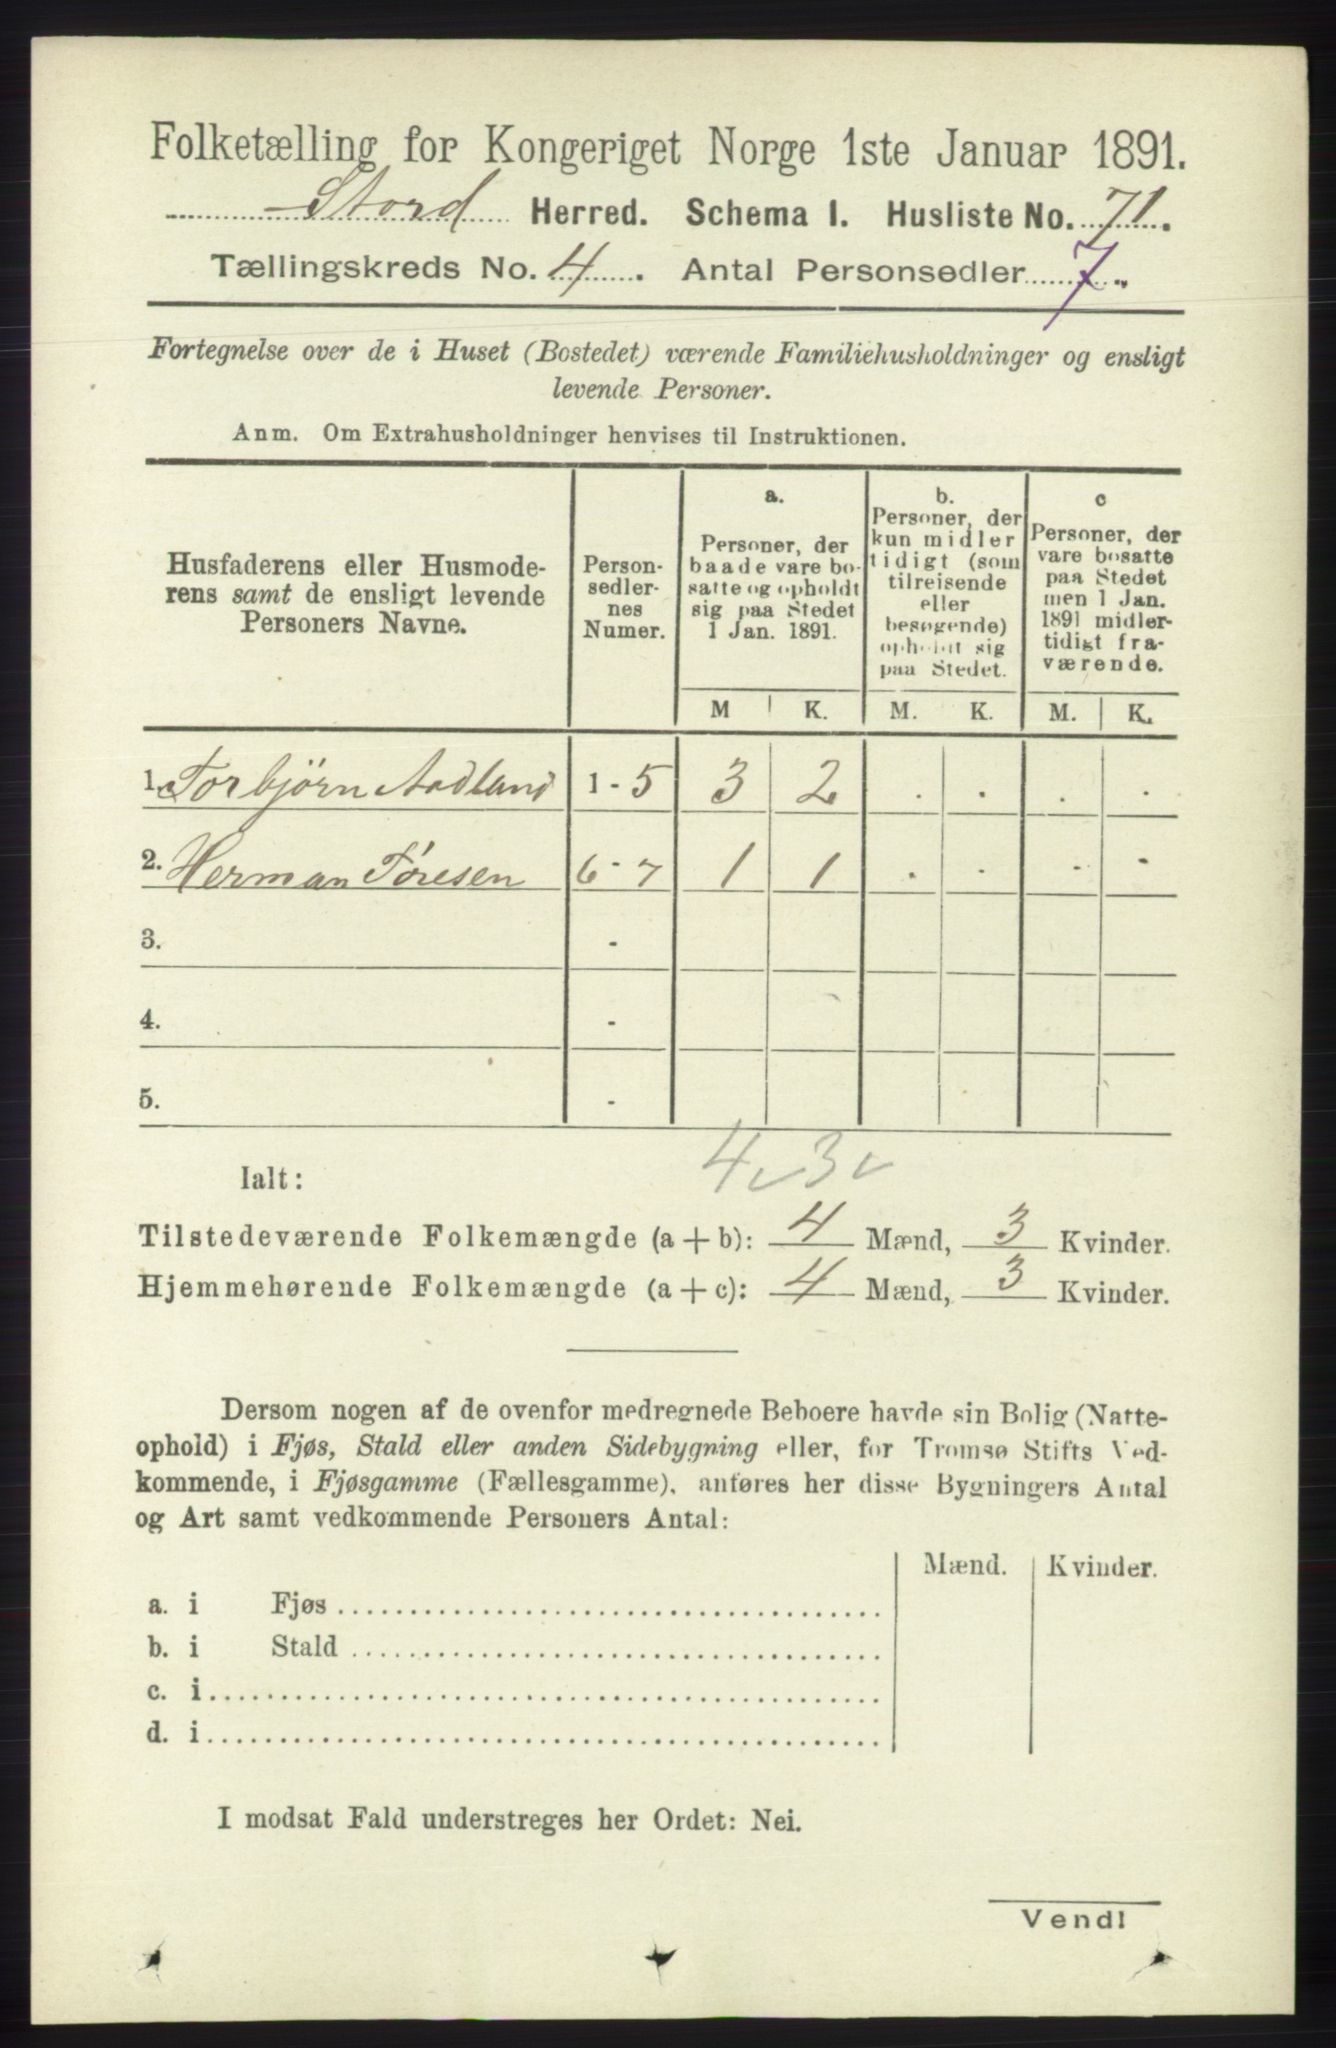 Folketælling for Kongeriget Norge 1ste Januar 1891.
Stord Herred. Schema I. Husliste No. 71.
Tællingskreds No. 4. Antal Personsedler 7.
Fortegnelse over de i Huset (Bostedet) værende Familiehusholdninger og ensligt
levende Personer.
Anm. Om Extrahusholdninger henvises til Instruktionen.
Husfaderens eller Husmode-
rens samt de ensligt levende
Personers Navne.
Person-
sedler-
nes
Numer.
a.
Personer, der
baade vare bo-
satte og opholdt
sig paa Stedet
1 Jan. 1891.
b.
Personer, der
kun midler
tidigt (som
tilreisende
eller
besøgende)
opholdt sig
paa Stedet.
c
Personer, der
vare bosatte
paa Stedet
men 1 Jan.
1891 midler-
tidigt fra-
værende.
M K. M. K. M. K.
1. Torbjørn Aadland 1 - 5 3 2 . . . .
2. Herman Töresen 6 - 7 1 1 . . . .
3. -
4. -
5. -
4 3
Ialt:
Tilstedeværende Folkemængde (a + b): 4 Mænd, 3 Kvinder.
Hjemmehørende Folkemængde (a + c): 4 Mænd, 3 Kvinder.
Dersom nogen af de ovenfor medregnede Beboere havde sin Bolig (Natte-
ophold) i Fjøs, Stald eller anden Sidebygning eller, for Tromsø Stifts Ved-
kommende, i Fjøsgamme (Fællesgamme), anføres her disse Bygningers Antal
og Art samt vedkommende Personers Antal:
Mænd. Kvinder.
a. i Fjøs
b. i Stald
c. i
d. i
I modsat Fald understreges her Ordet: Nei.
Vend!